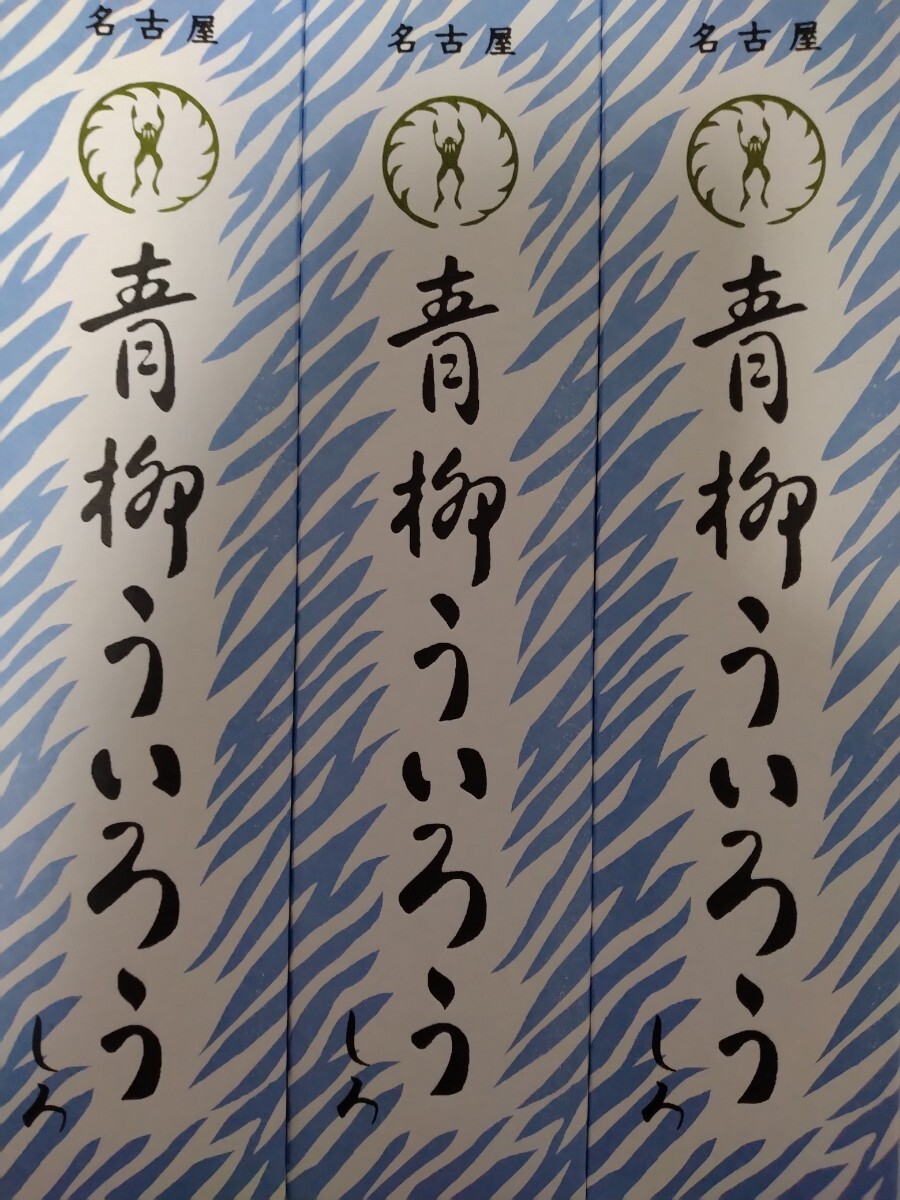 名古屋
青柳ういろう
しろ
名古屋
青柳ういろう
しろ
名古屋
青柳ういろう
しろ